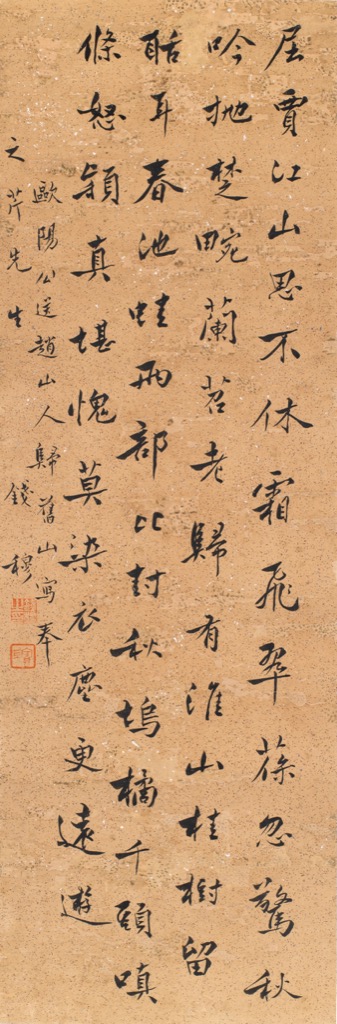 屈賈江山思不休霜飛翠葆忽驚秋
吟拋楚畹蘭苕老歸有淮山桂樹留
聒耳春池蛙兩部比封秋塢橘千頭嗔
條怒穎真堪愧莫染衣塵更遠遊
歐陽公送趙山人歸舊山寫奉
之芹先生
錢穆